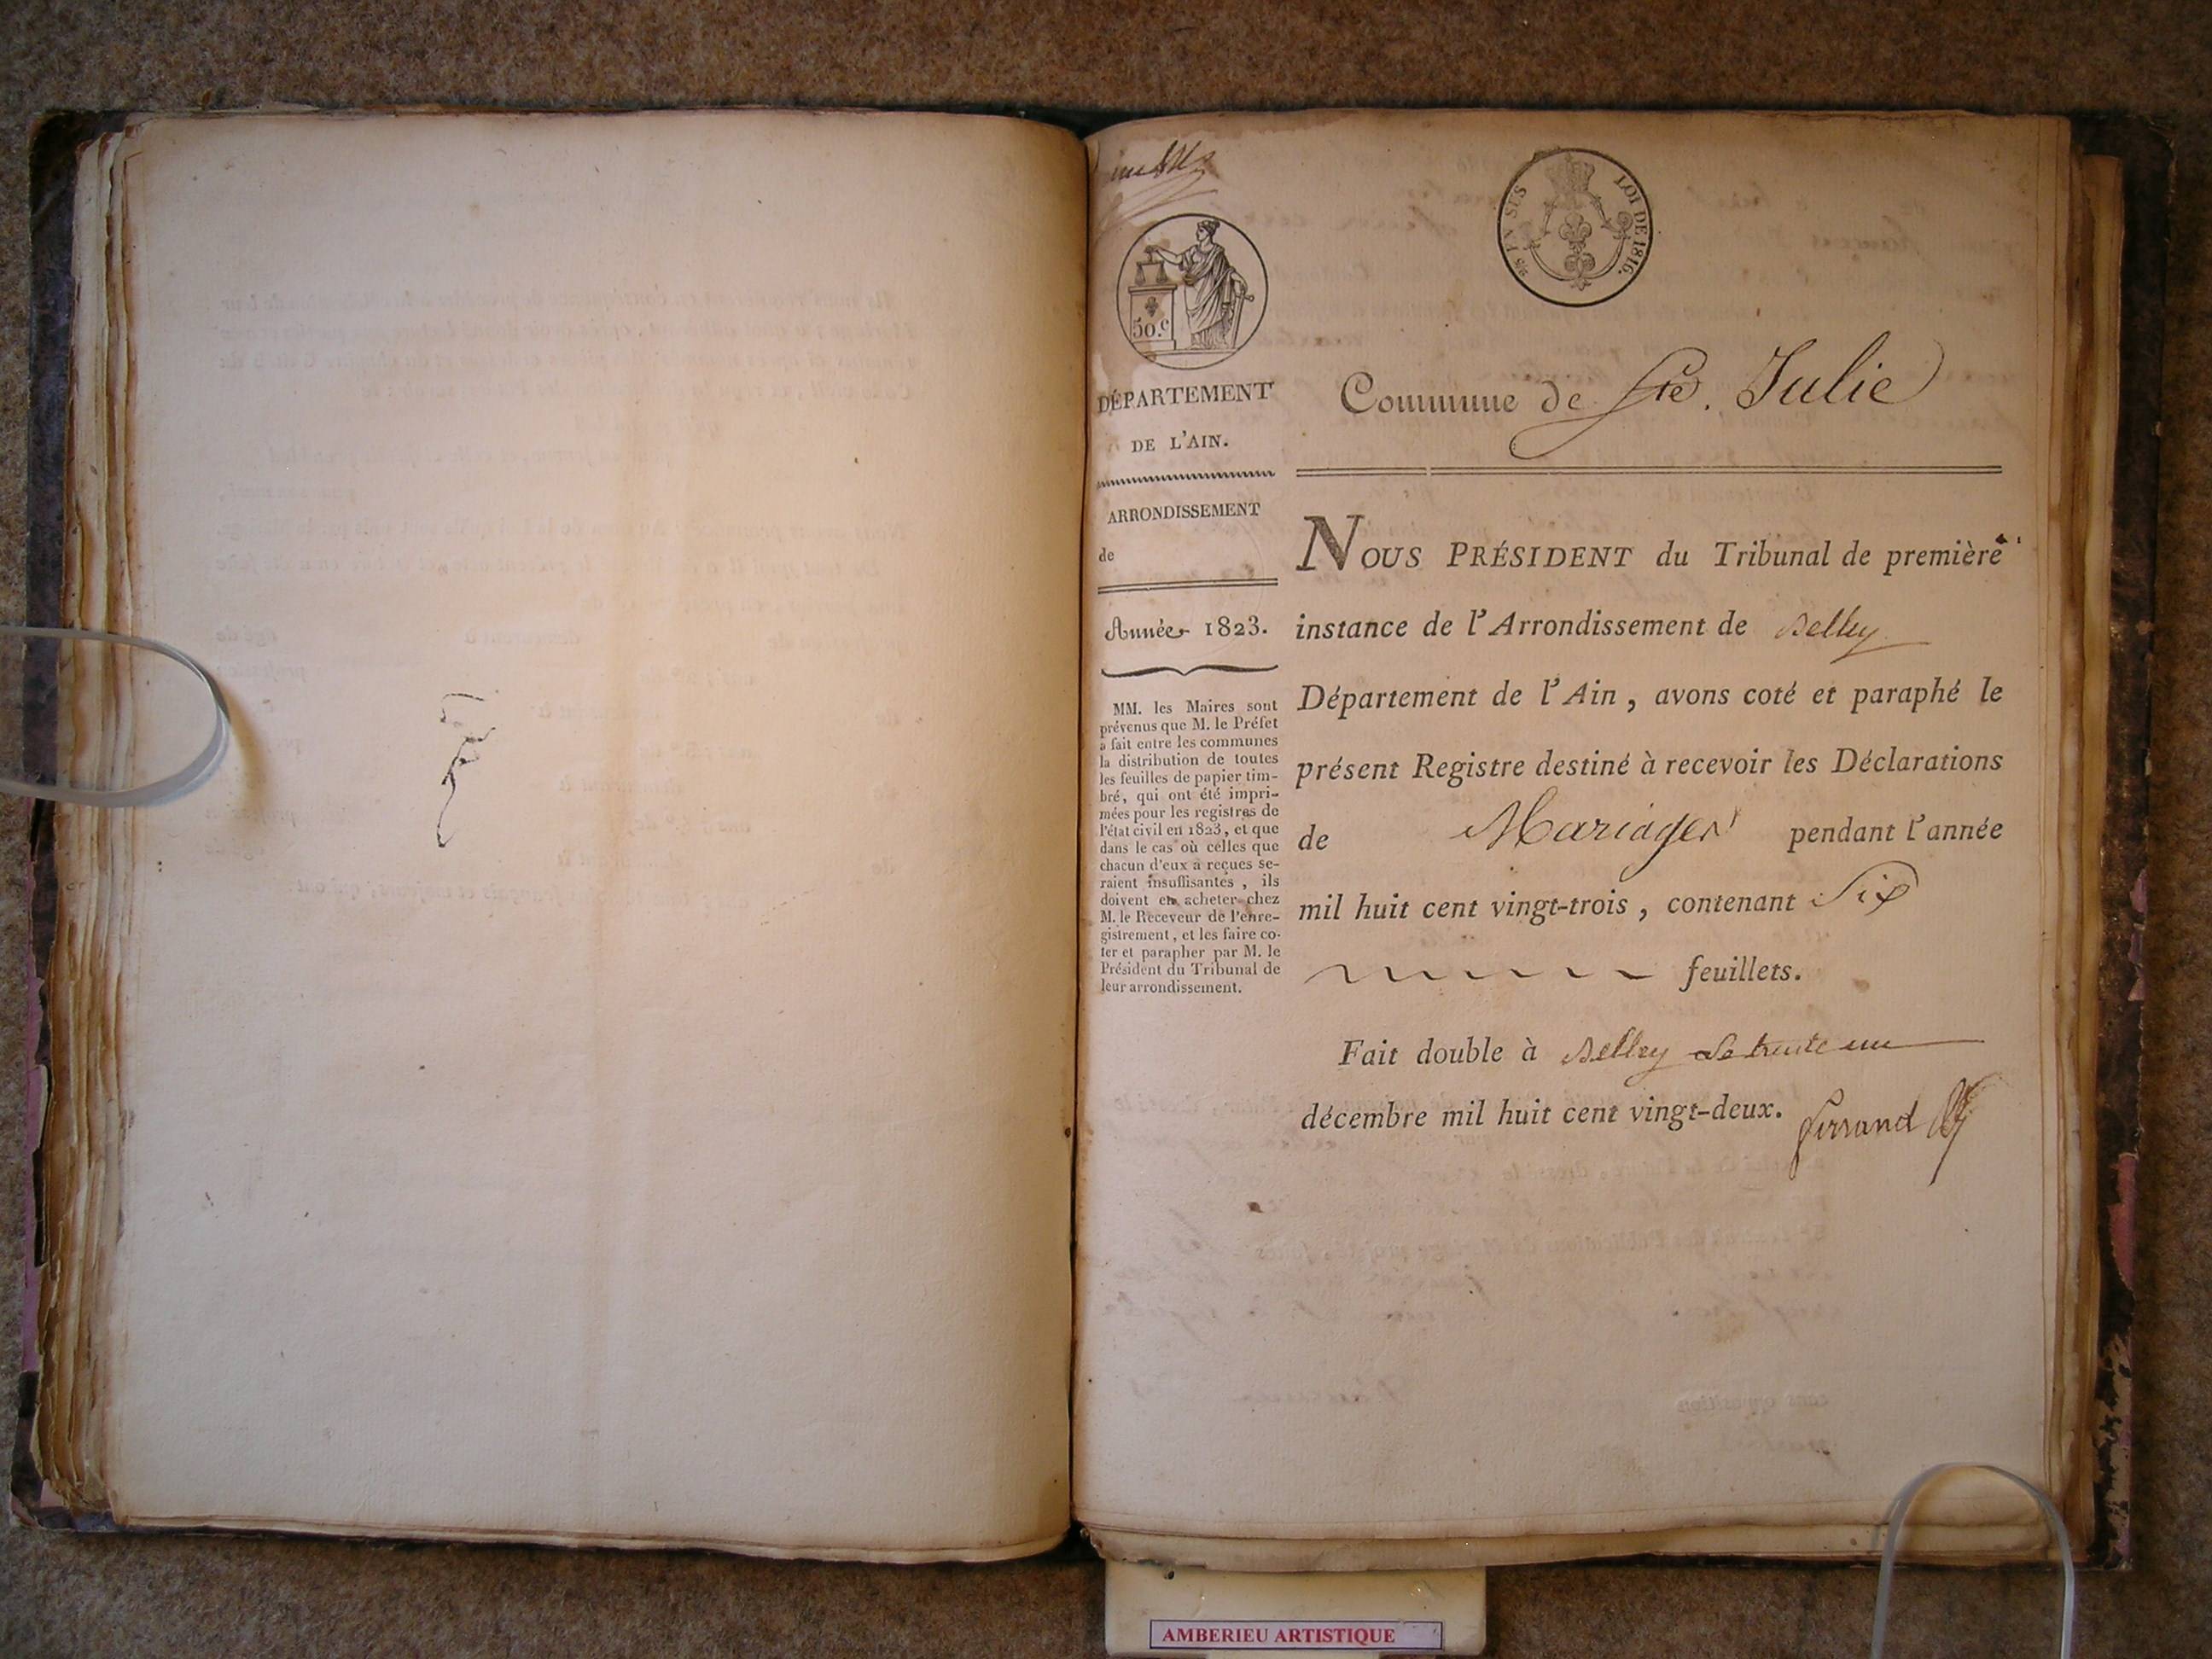 50.c
EN SUS
LOI DE 1816.
DÉPARTEMENT
DE L'AIN.
ARRONDISSEMENT
de
Année 1823.
MM. les Maires sont
prévenus que M. le Préfet
a fait entre les communes
la distribution de toutes
les feuilles de papier tim-
bré, qui ont été impri-
mées pour les registres de
l'état civil en 1823, et que
dans le cas où celles que
chacun d'eux a reçues se-
raient insuffisantes, ils
doivent en acheter chez
M. le Receveur de l'enre-
gistrement, et les faire co-
ter et parapher par M. le
Président du Tribunal de
leur arrondissement.
Commune de Ste. Julie
NOUS PRÉSIDENT du Tribunal de première
instance de l'Arrondissement de Belley
Département de l'Ain, avons coté et paraphé le
présent Registre destiné à recevoir les Déclarations
de Mariages pendant l'année
mil huit cent vingt-trois, contenant Six
feuillets.
Fait double à Belley le trente un
décembre mil huit cent vingt-deux. Ferrand
AMBERIEU ARTISTIQUE